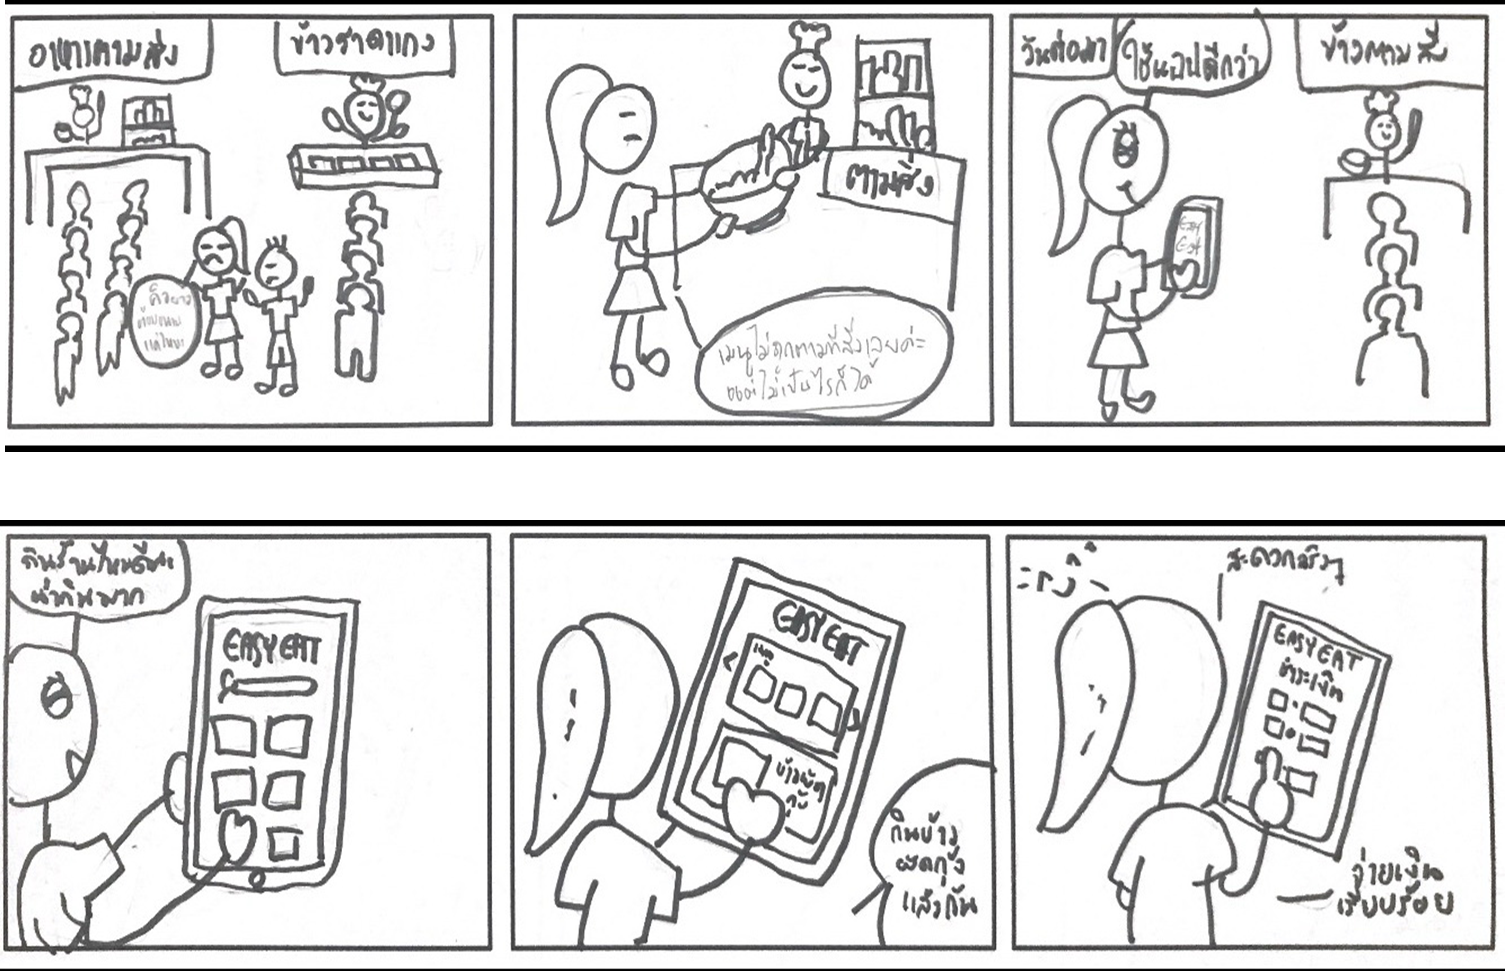 อาหารตามสั่ง
ข้าวราดแกง
คิวยาว
แค่ไหน
ตามสั่ง
เมนูไม่ถูกตามที่สั่งเลยค่ะ
แต่ไม่เป็นไรก็ได้
วันต่อมา
ใช้แอปดีกว่า
ข้าวตามสั่ง
Easy
Eat
กินร้านไหนดีนะ
น่ากินมาก
EASY EAT
EASY EAT
เมนู
ข้าวผัด
กุ้ง
กินข้าว
ผัดกุ้ง
แล้วกัน
สะดวกจริงๆ
EASY EAT
ชำระเงิน
จ่ายเงิน
เรียบร้อย